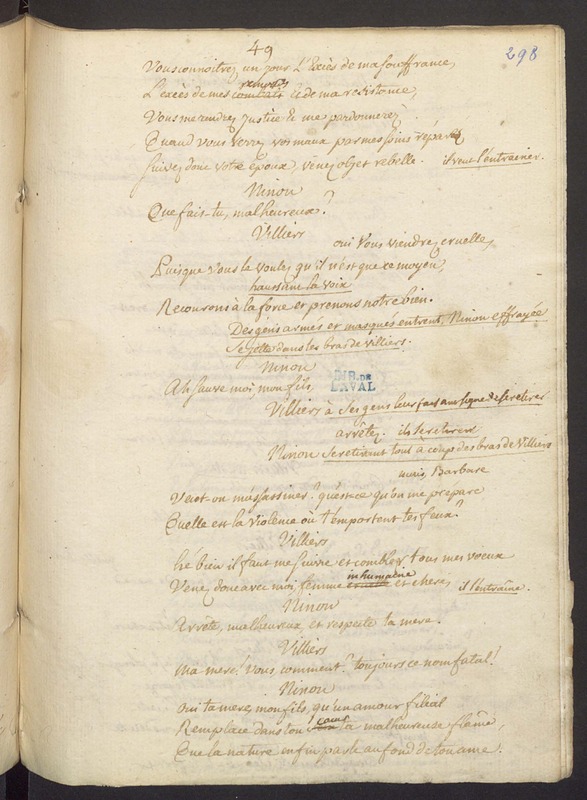 49
298
Vous connoitrez un jour L'Excès de ma souffrance,
L'excès de mes combats remors et de ma resistance,
Vous me rendrez justice et me pardonnerez
Quand vous verrez vos maux par mes soins réparés
suivez donc votre époux, venez objet rebelle. il veut l'entrainer.
Ninon
Que fais-tu, malheureux?
Villiers
oui vous viendrez cruelle,
Puisque vous le voulez qu'il n'est que ce moyen,
haussant la voix
Recourons à la force et prenons notre bien.
Des gens armés et masqués entrent, Ninon effrayée
se jette dans les bras de villiers.
Ninon
Ah sauve moi, mon fils,
BIB. DE
LAVAL
Villiers à ses gens leur fait un signe de se retirer
arrêtez. ils se retirent
Ninon se retirant tout à coup des bras de Villiers
mais, Barbare
Veut on m'assassiner? qu'est-ce qu'on me prépare
Quelle est la violence où t'emportent tes feux?
Villiers
he bien il faut me suivre et combler tous mes voeux
Venez donc avec moi, femme cruelle inhumaine et chere, il l'entraîne.
Ninon
Arrête, malheureux, et respecte ta mere.
Villiers
ma mere! Vous, comment? toujours ce nom fatal!
Ninon
oui ta mere, mon fils, qu'un amour filial
Remplace dans ton coeur ta malheureuse flâme,
Que la nature enfin parle au fond de ton ame.